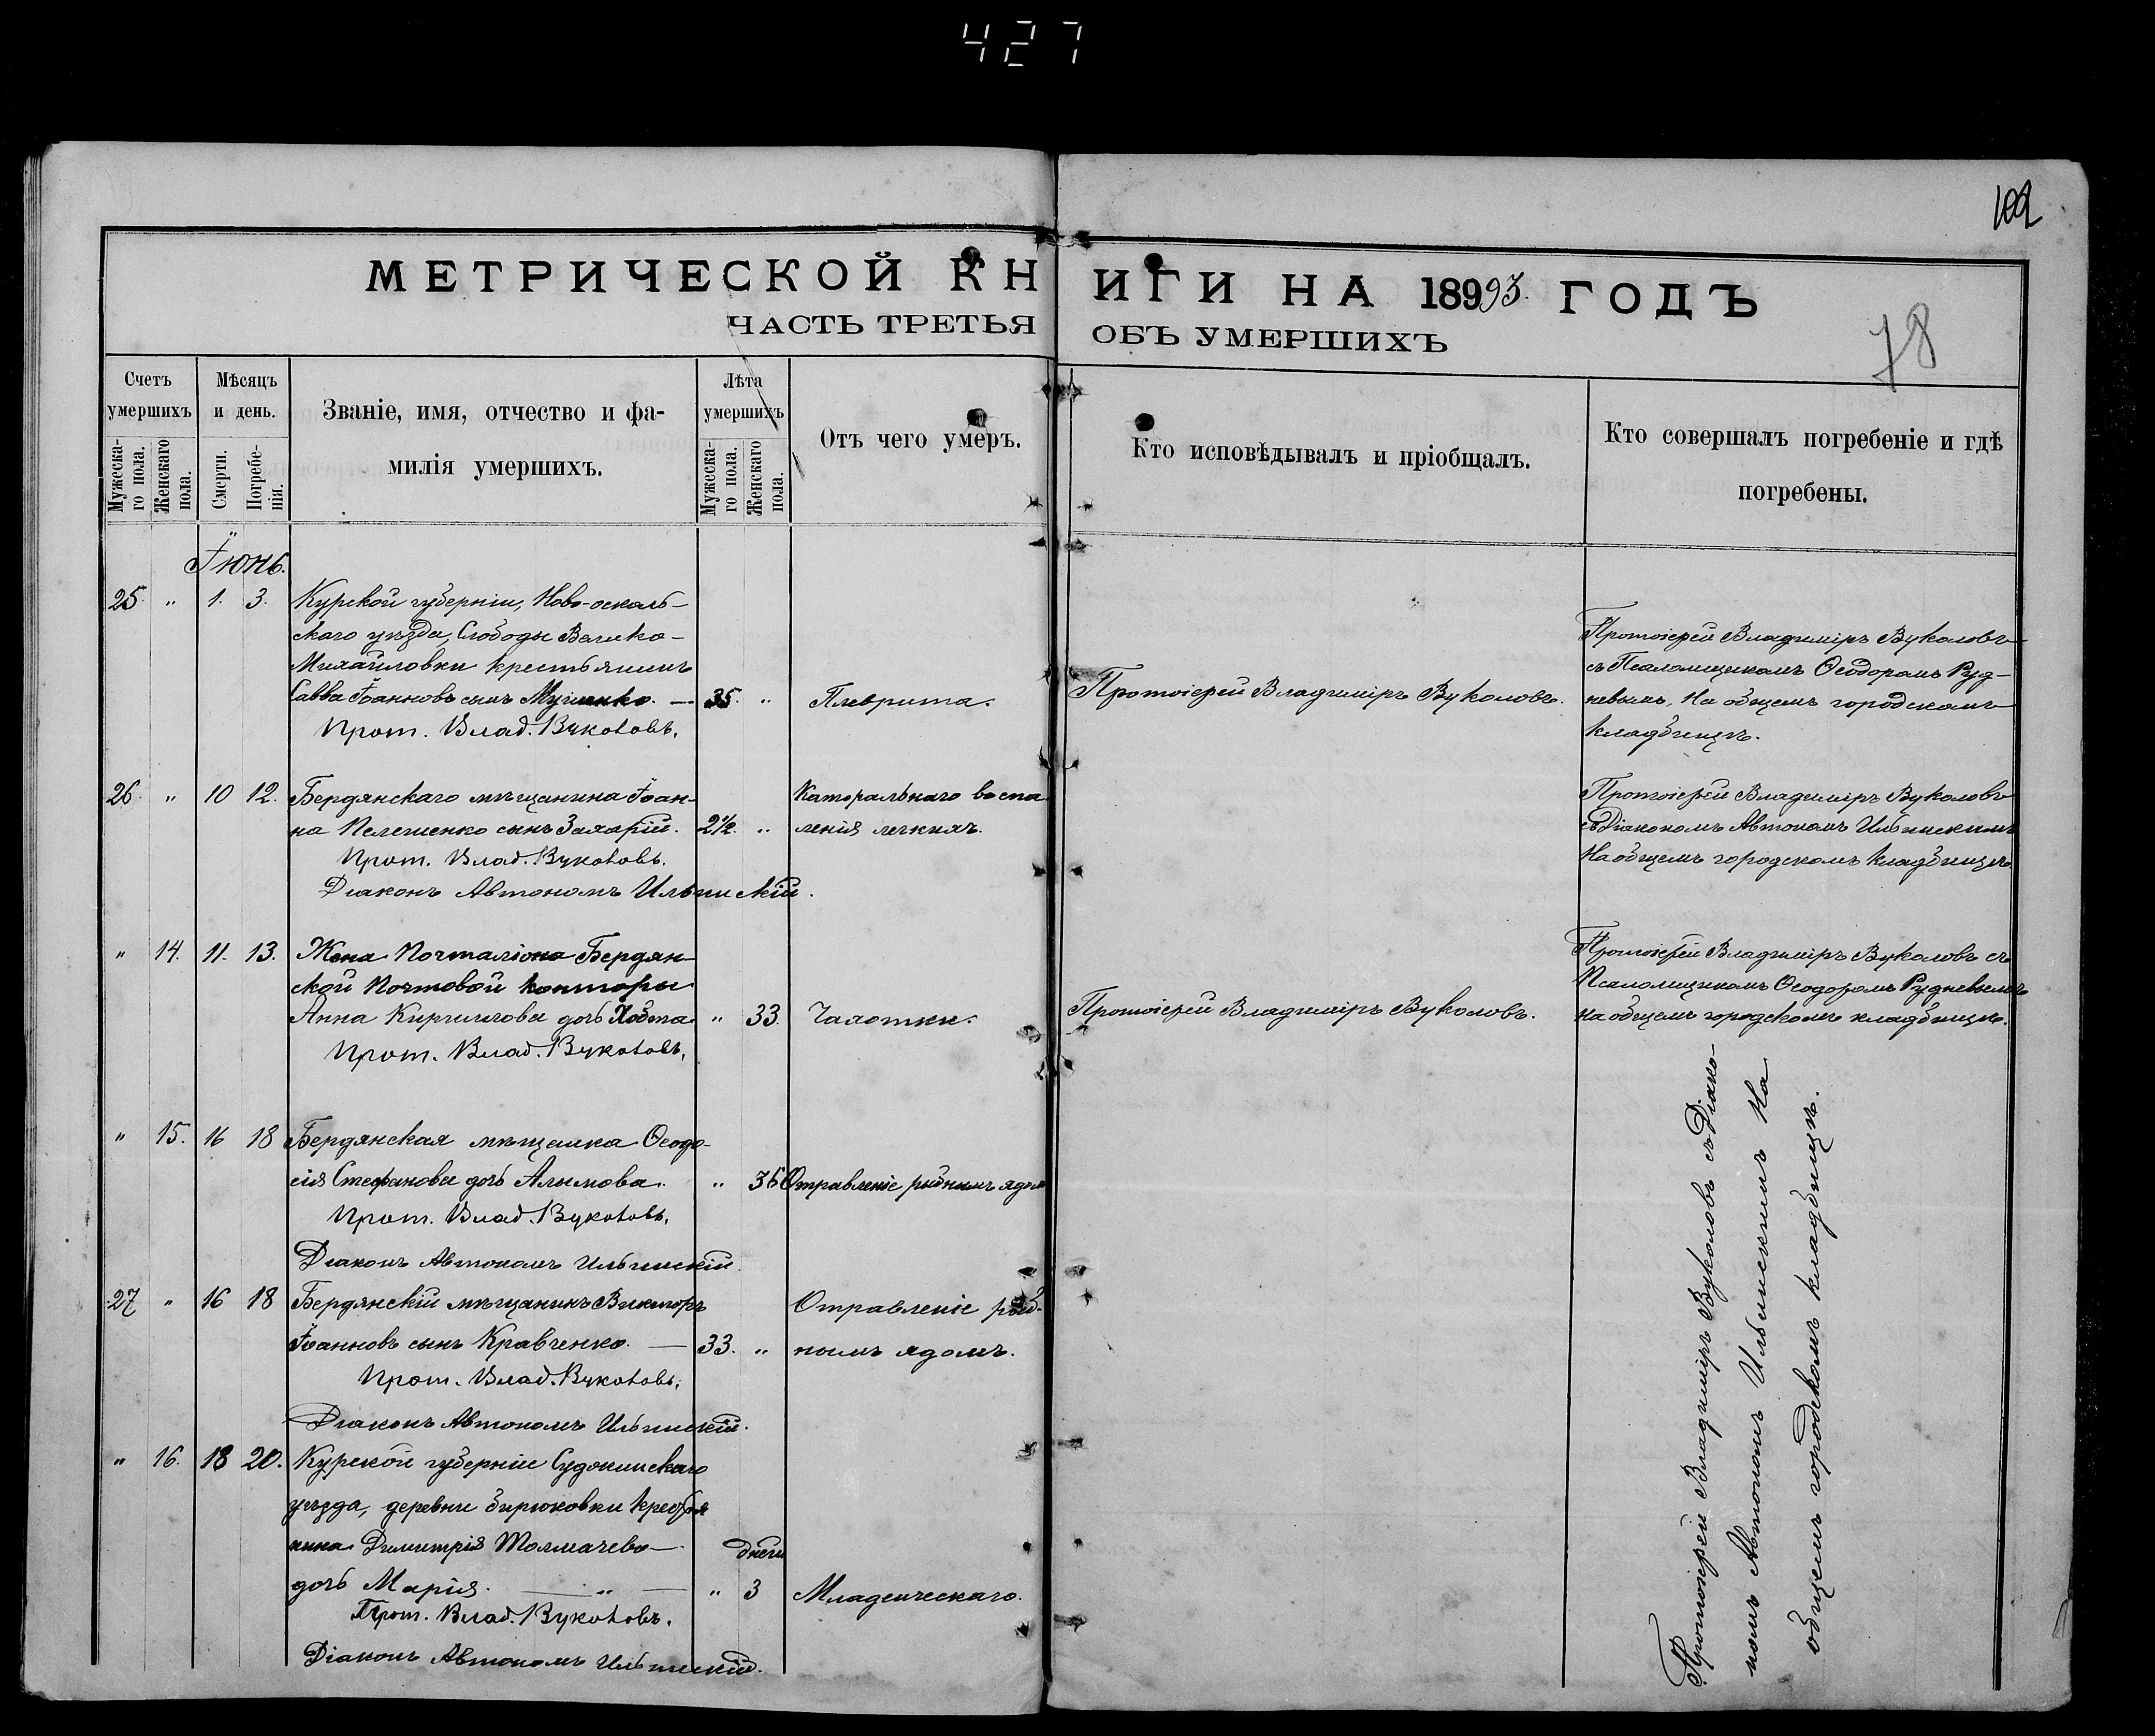 427
102
МЕТРИЧЕСКОЙ КНИГИ НА 18993. ГОДЪ
ЧАСТЬ ТРЕТЬЯ ОБЪ УМЕРШИХЪ
78
Счетъ умершихъ
Мужеска-го пола.
Женскаго пола.
Мѣсяцъ и день.
Смерти.
Погребе-нія.
Званіе, имя, отчество и фа-
милія умершихъ.
Лѣта умершихъ
Мужеска-го пола.
Женскаго пола.
Отъ чего умеръ.
Кто исповѣдывалъ и пріобщалъ.
Кто совершалъ погребеніе и гдѣ
погребены.
Іюнь.
25. " 1. 3. Курской губерніи, Ново-оскаль-
скаго уѣзда, Слободы Велико-
Михайловки крестьянинъ
Савва Іоанновъ сынъ — 35. " Плеврита.
Прот. Влад. Вуколовъ.
Протоіерей Владиміръ Вуколовъ.
Протоіерей Владиміръ Вуколовъ
съ Псаломщикомъ Ѳеодоромъ Руд-
невымъ, На общемъ городскомъ
кладбищѣ.
26. " 10 12. Бердянскаго мѣщанина Іоан-
на Пелешенко сынъ Захарій. 2½. "
Катаральнаго воспа
ленія легкихъ.
Прот. Влад. Вуколовъ.
Діаконъ Автономъ Ильинскій.
Протоіерей Владиміръ Вуколовъ
съ Діакономъ Автономъ Ильинскимъ
На общемъ городскомъ кладбищѣ
" 14. 11. 13. Жена Почталіона Бердян-
ской Почтовой Конторы
Анна Кириллова дочь " 33. Чахотки.
Прот. Влад. Вуколовъ.
Протоіерей Владиміръ Вуколовъ.
Протоіерей Владиміръ Вуколовъ съ
Псаломщикомъ Ѳеодоромъ Рудневымъ
на общемъ городскомъ кладбищѣ.
" 15. 16 18 Бердянская мѣщанка Ѳеодо-
сія Стефанова дочь Алымова. " 36 Отравленіе рыбнымъ ядом
Прот. Влад. Вуколовъ.
Діаконъ Автономъ Ильинскій.
27 " 16 18 Бердянскій мѣщанинъ Викторъ
Іоанновъ сынъ Кравченко. — 33. "
Отравленіе рыб-
нымъ ядомъ.
Прот. Влад. Вуколовъ.
Діаконъ Автономъ Ильинскій.
" 16. 18 20. Курской губерніи
уѣзда, деревни Бирюковки крестья
нина Димитрія Толмачево —
дочь Марія. — " — " дней 3 Младенческаго.
Прот. Влад. Вуколовъ.
Діаконъ Автономъ Ильинскій.
Протоіерей Владиміръ Вуколовъ съ Діако-
номъ Автономъ Ильинскимъ На
общемъ городскомъ кладбищѣ.